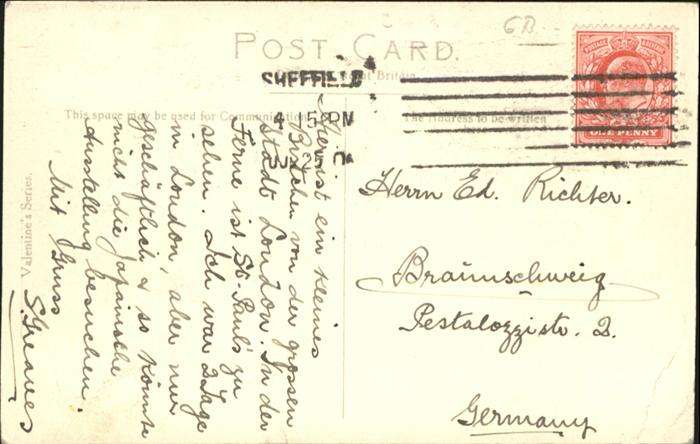 6B
POST CARD.
SHEFFIELD
4 15 PM
25
POSTAGE REVENUE
ONE PENNY
This space may be used for Communication
The Address to be written
Valentine's Series.
Hier ist ein kleines
Bildchen von der grossen
Stadt London. In der
Ferne ist St-Paul's zu
sehen. Ich war 2 Tage
in London, aber nur
geschäftlich & so könnte
nicht die Japanische
Ausstellung besuchen.
Mit Gruss
S. Greaves
Herrn Ed. Richter.
Braunschweig
Pestalozzistr. 2.
Germany